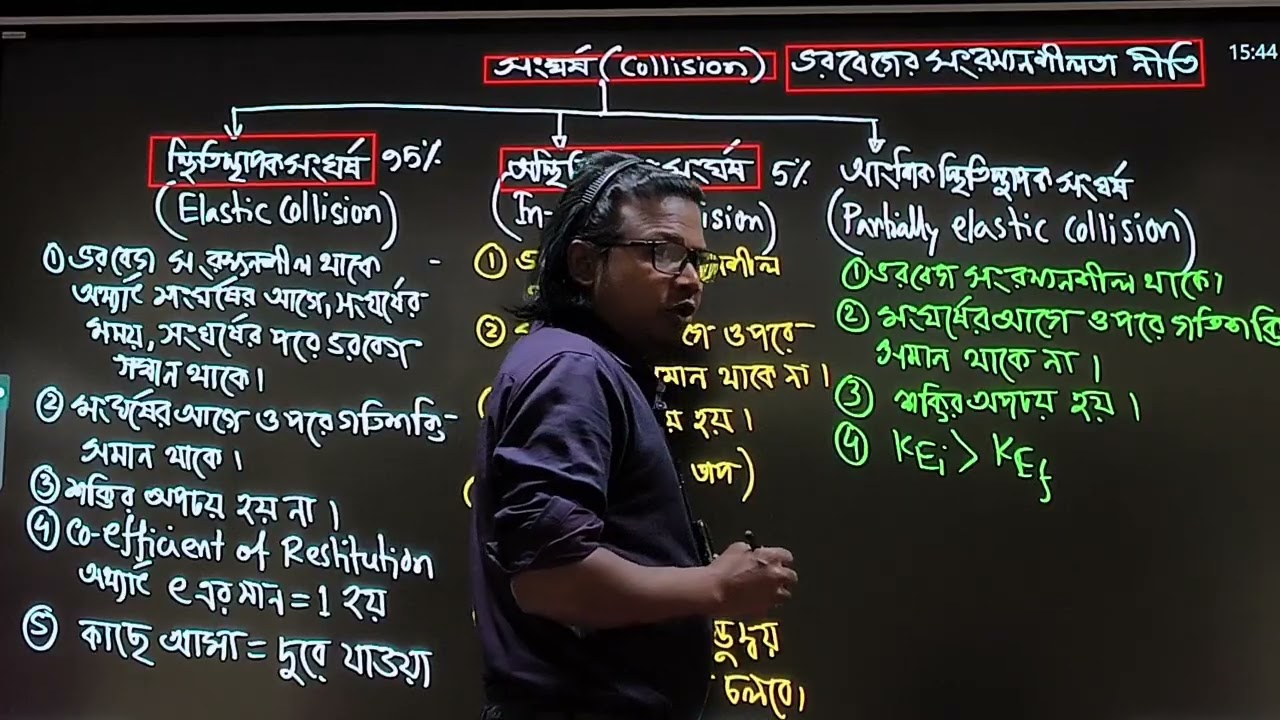 সংঘর্ষ (Collision) ভরবেগের সংরক্ষণশীলতা নীতি
15:44
স্থিতিস্থাপক সংঘর্ষ 95%
(Elastic Collision)
① ভরবেগ সংরক্ষনশীল থাকে -
অর্থ্যাৎ সংঘর্ষের আগে, সংঘর্ষের
সময়, সংঘর্ষের পরে ভরবেগ
সমান থাকে।
② সংঘর্ষের আগে ও পরে গতিশক্তি
সমান থাকে।
③ শক্তির অপচয় হয় না।
④ Co-efficient of Restitution
অর্থ্যাৎ e এর মান = 1 হয়
⑤ কাছে আসা = দূরে যাওয়া
সংঘর্ষ 5%
(In-
①
②
ও পরে
থাকে না।
হয়।
তাপ)
চলবে।
আংশিক স্থিতিস্থাপক সংঘর্ষ
(Partially elastic Collision)
① ভরবেগ সংরক্ষনশীল থাকে।
② সংঘর্ষের আগে ও পরে গতিশক্তি
সমান থাকে না।
③ শক্তির অপচয় হয়।
④ KEi > KEf